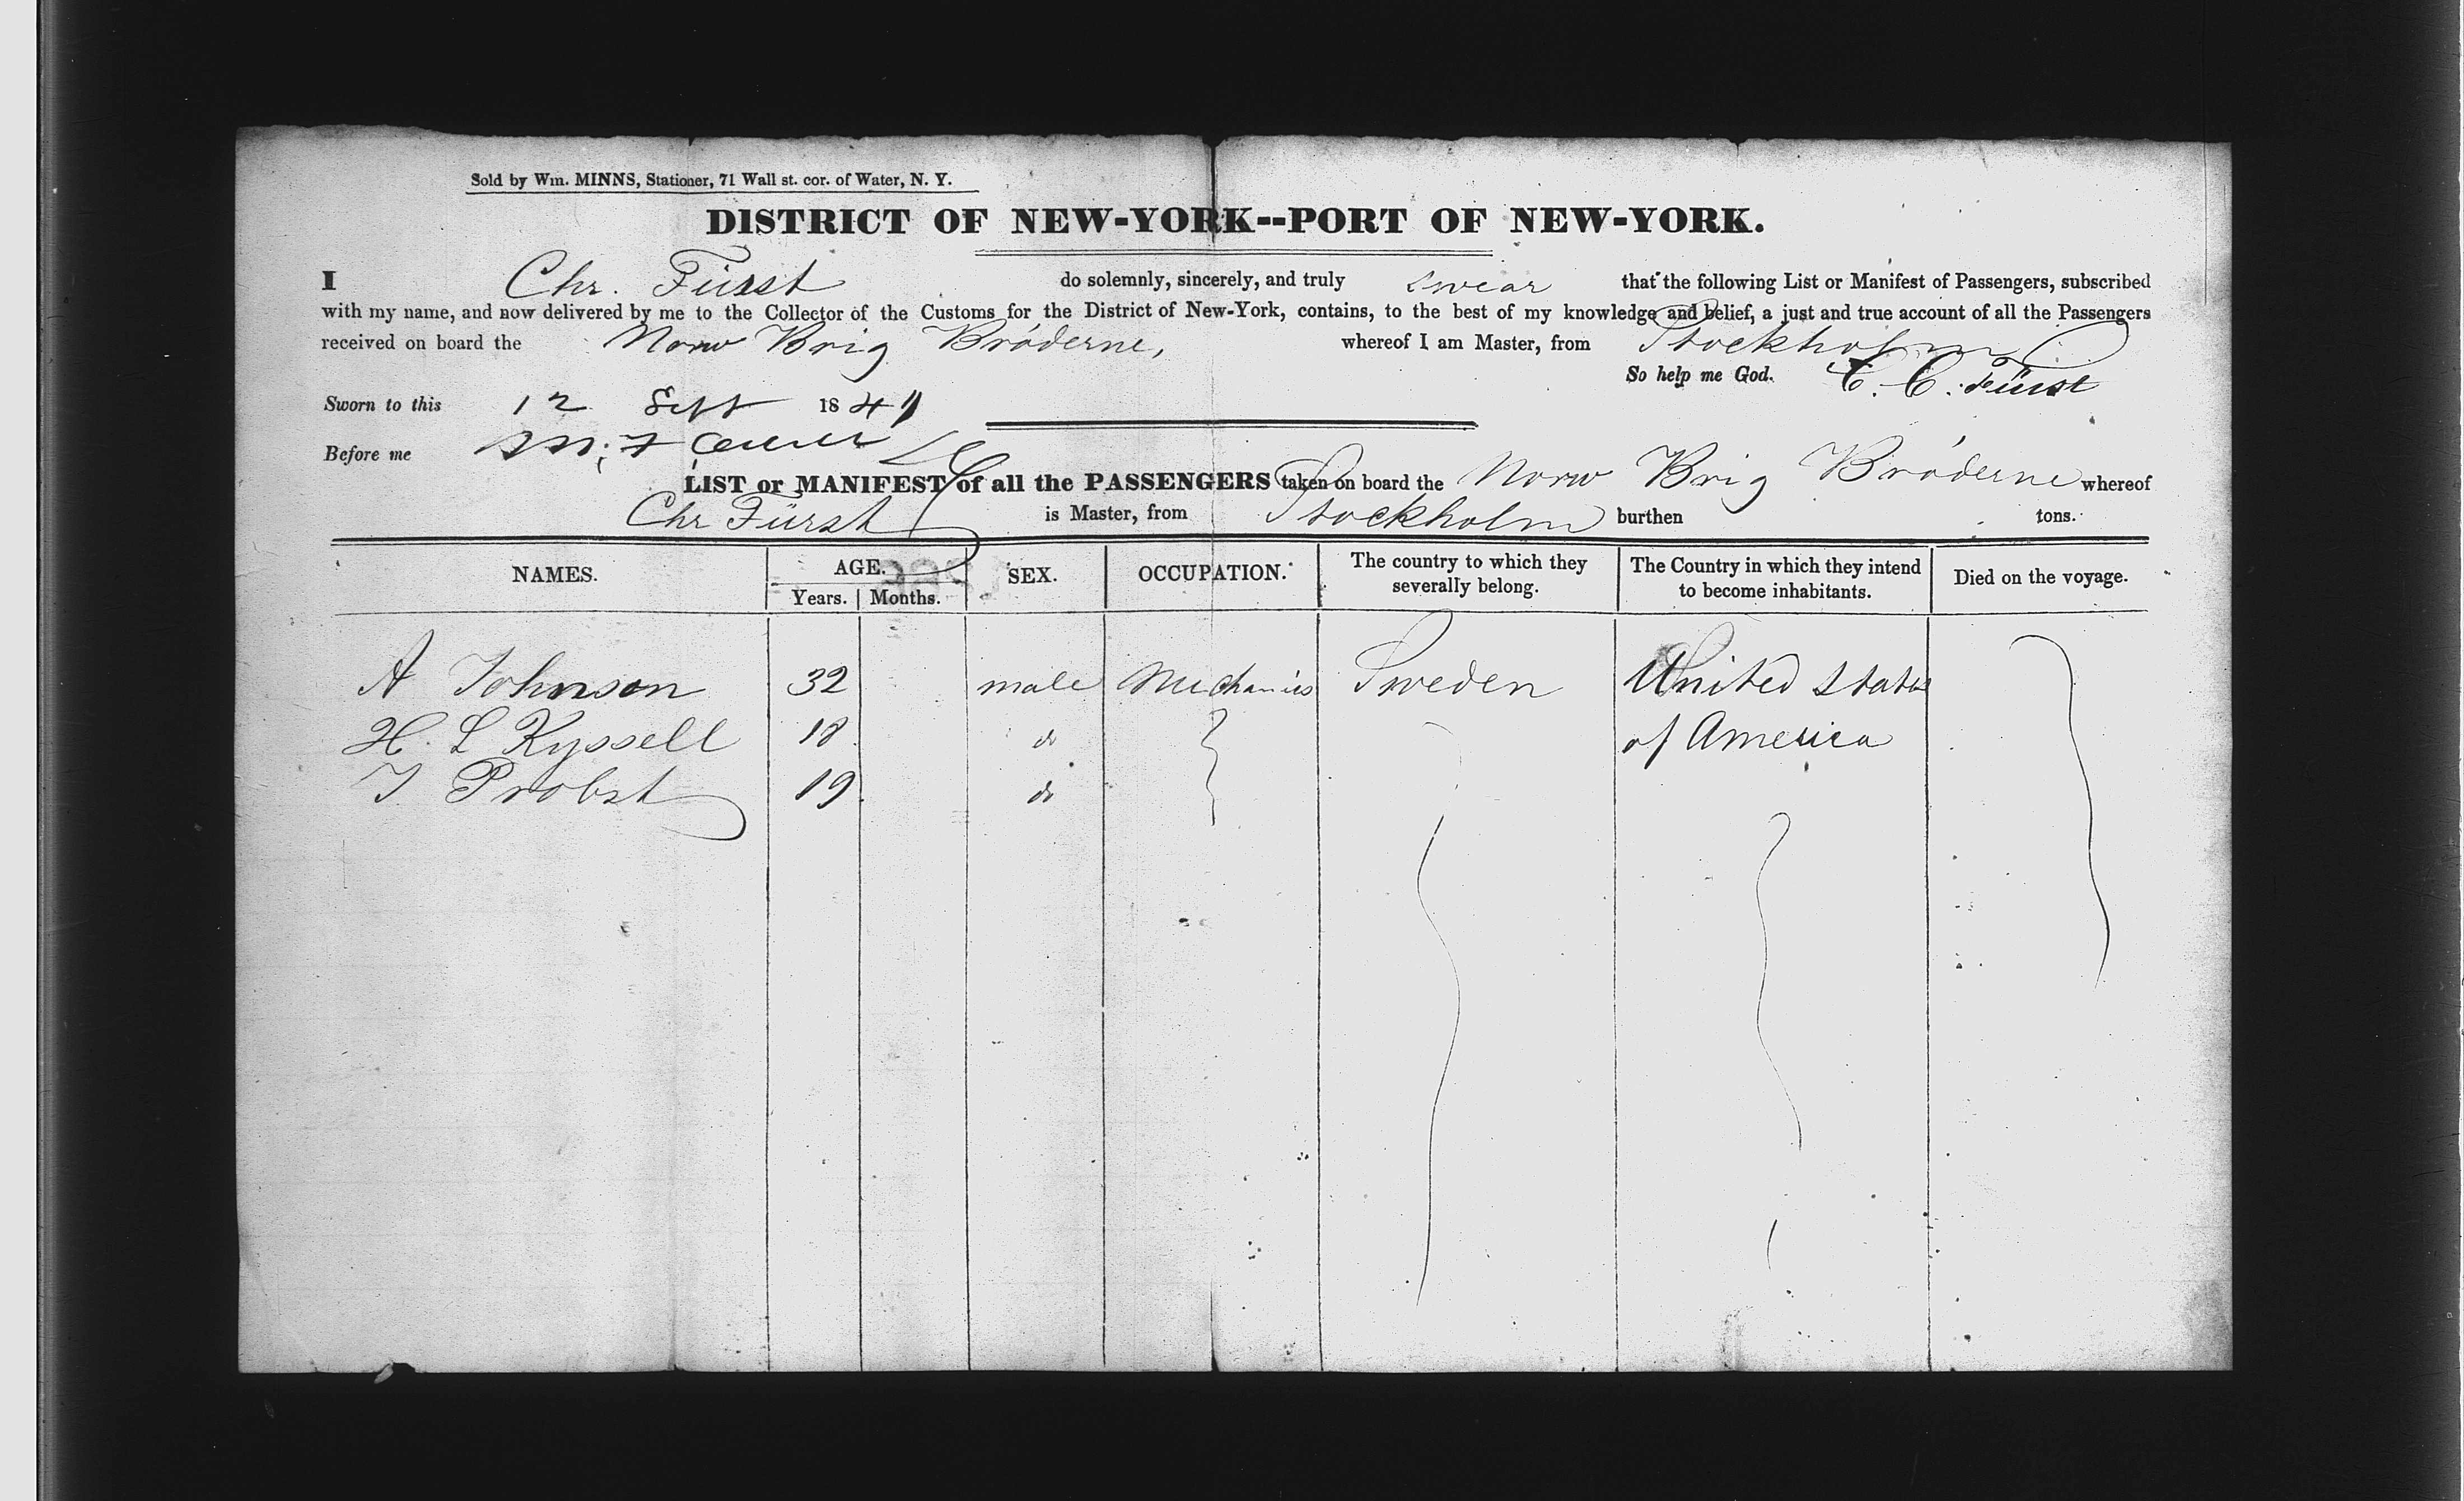 Sold by Wm. MINNS, Stationer, 71 Wall st. cor. of Water, N. Y.
DISTRICT OF NEW-YORK--PORT OF NEW-YORK.
I Chr. Fürst do solemnly, sincerely, and truly swear that the following List or Manifest of Passengers, subscribed
with my name, and now delivered by me to the Collector of the Customs for the District of New-York, contains, to the best of my knowledge and belief, a just and true account of all the Passengers
received on board the Norw Brig Bröderne, whereof I am Master, from Stockholm
So help me God. C. C. Fürst
Sworn to this 12 Sept 184
Before me
LIST or MANIFEST of all the PASSENGERS taken on board the Norw Brig Bröderne whereof
Chr Fürst is Master, from Stockholm burthen tons.
NAMES. AGE. SEX. OCCUPATION. The country to which they severally belong. The Country in which they intend to become inhabitants. Died on the voyage.
Years. Months.
A Johnson 32 male Mechanics Sweden United States
H. L Kyssell 18 do of America
J Probst 19 do